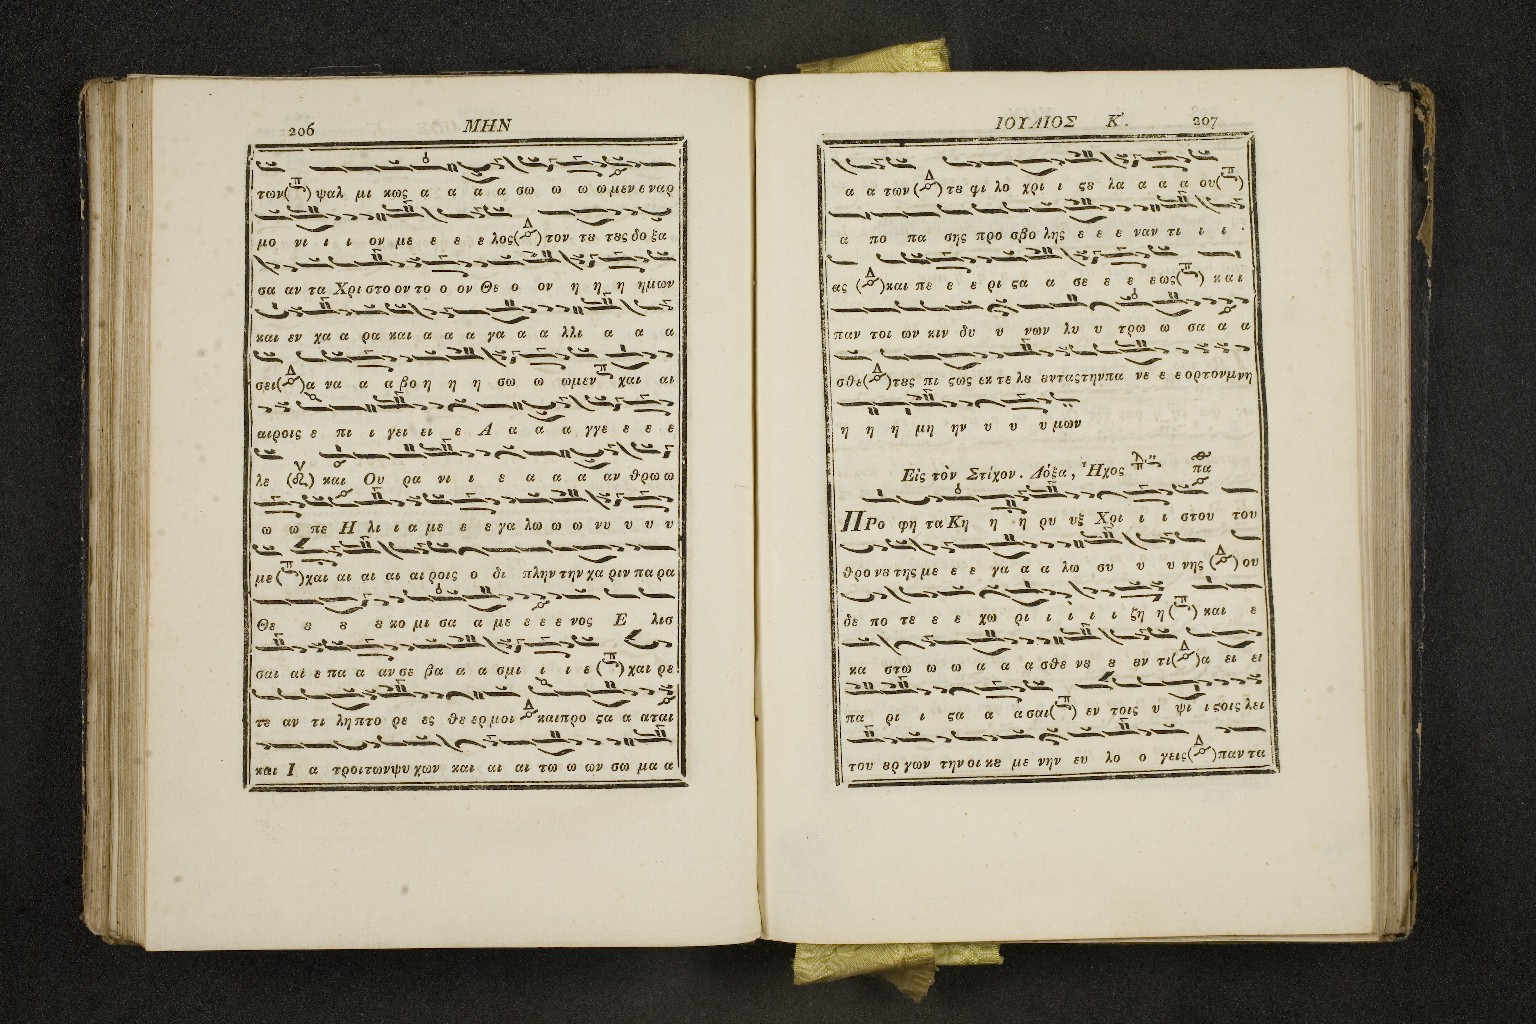 206 ΜΗΝ
των(π) ψαλ μι κως α α α α σω ω ω ω μεν εναρ
μο νι ι ι ον με ε ε ε λος(Δ) τον τȣ τȣς δο ξα
σα αν τα Χρι στο ον το ο ον Θε ο ον η η η ημων
και εν χα α ρα και α α α γα α α λλι α α α
σει(Δ)α να α α βο η η η σω ω ωμεν π χαι αι
αιροις ε πι ι γει ει ε Α α α α γγε ε ε ε
λε (ν) και Ου ρα νι ι ε α α α αν θρω ω
ω ω πε Η λι ι α με ε ε γα λω ω ω νυ υ υ υ
με (π)χαι αι αι αι αι ροις ο δι πλην την χα ριν πα ρα
Θε ȣ ȣ ȣ κο μι σα α με ε ε ε νος Ε λισ
σαι αι ε πα α αν σε βα α α σμι ι ι ε (π) χαι ρε
τε αν τι ληπτο ρε ες θε ερ μοι Δ και προ ϛα α αται
και Ι α τροι των ψυ χων και αι αι τω ω ων σω μα α
ΙΟΥΛΙΟΣ Κ. 207
α α των (Δ) τȣ φι λο χρι ι ϛȣ λα α α α ου(π)
α πο πα σης προ σβο λης ε ε ε ναν τι ι ι
ας (Δ) και πε ε ε ρι ϛα α σε ε ε εως(π) και
παν τοι ων κιν δυ υ νων λυ υ τρω ω σα α α
σθε(Δ)τȣς πι ϛως εκ τε λȣ ȣντας την πα νε ε ε ορτον μνη
η η η μη ην υ υ υ μων
Εἰς τὸν Στίχον. Δόξα, Ἦχος πα
ΠΡο φη τα Κη η η ρυ υξ Χρι ι ι στου του
θρο νȣ της με ε ε γα α α λω συ υ υ νης (Δ) ου
δε πο τε ε ε χω ρι ι ι ι ι ζη η (π) και ε
κα στω ω ω α α α σθε νȣ ȣ ȣν τι(Δ)α ει ει
πα ρι ι ϛα α α σαι(π) εν τοις υ ψι ι ϛοις λει
του ȣρ γων την οι κȣ με νην ευ λο ο γεις(Δ)παν τα